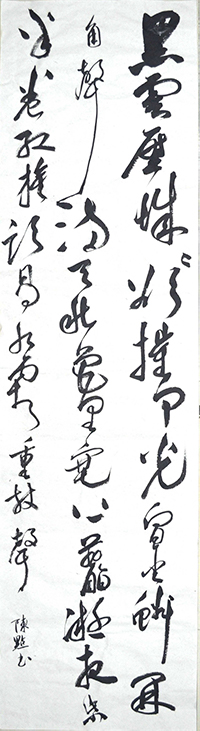 黑雲壓城々欲摧甲光向日鱗開
角聲滿天秋色里塞上燕脂凝夜紫
半卷紅旗臨易水霜重鼓聲
陳書